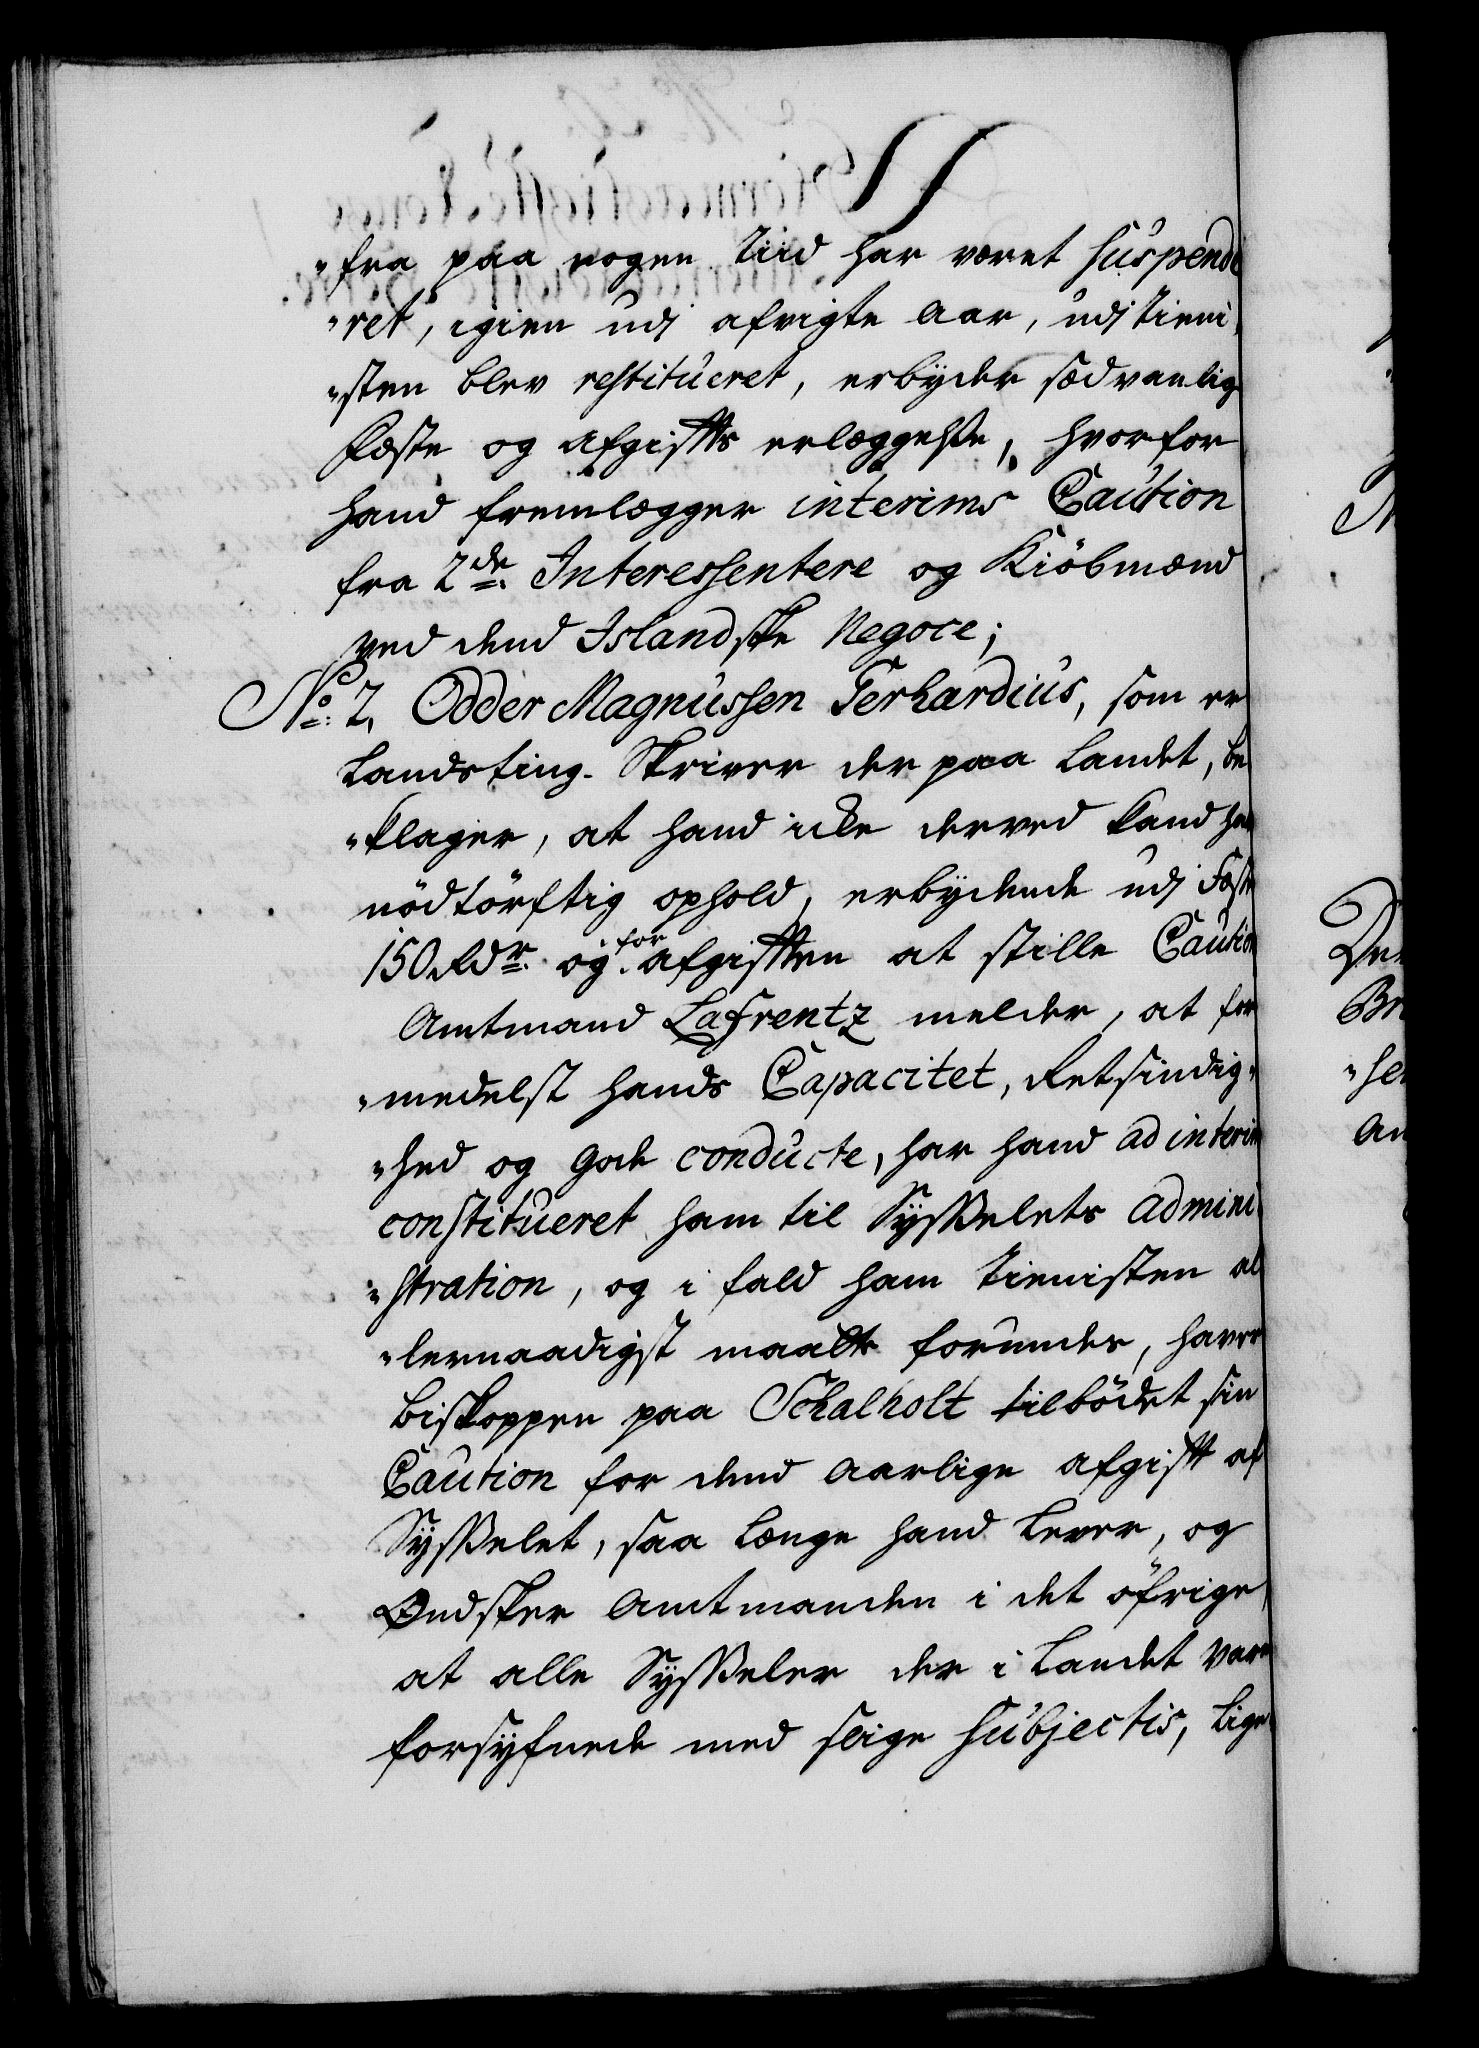 "fra paa nogen Tiid har været suspendi
"ret, igien udj afvigte Aar, udj Tieni,
"sten blev restitueret, erbyder sædvanlig
Fæste og Afgiffts erlæggelse, hvorfor
hand fremlægger interims Caution
fra 2de Interessentere og Kiöbmænd
ved dend Islandske Negoce;
No: 2. Odder Magnussen Ferhardius, som er
Landsting-Skriver der paa Landet, be
"klager, at hand icke derved kand hav
nödtörftig ophold, erbydende udj Fæste
150 Rdr: og for afgifften at stille Caution
Amtmand Lafrentz melder, at for
"medelst hands Capacitet, Retsindig"
"hed og gode conducte, har hand ad interim
constitueret ham til Sysselets admini
"stration, og i fald ham Tienisten al
"lernaadigst maatte forundes, haver
Biskoppen paa Schalholt tilbödet sin
Caution for dend aarlige afgifft af
Sysselet, saa længe hand lever, og
Ondsker Amtmanden i det öfrige,
at alle Sysseler der i Landet vare
forsynede med slige subjectis, lige